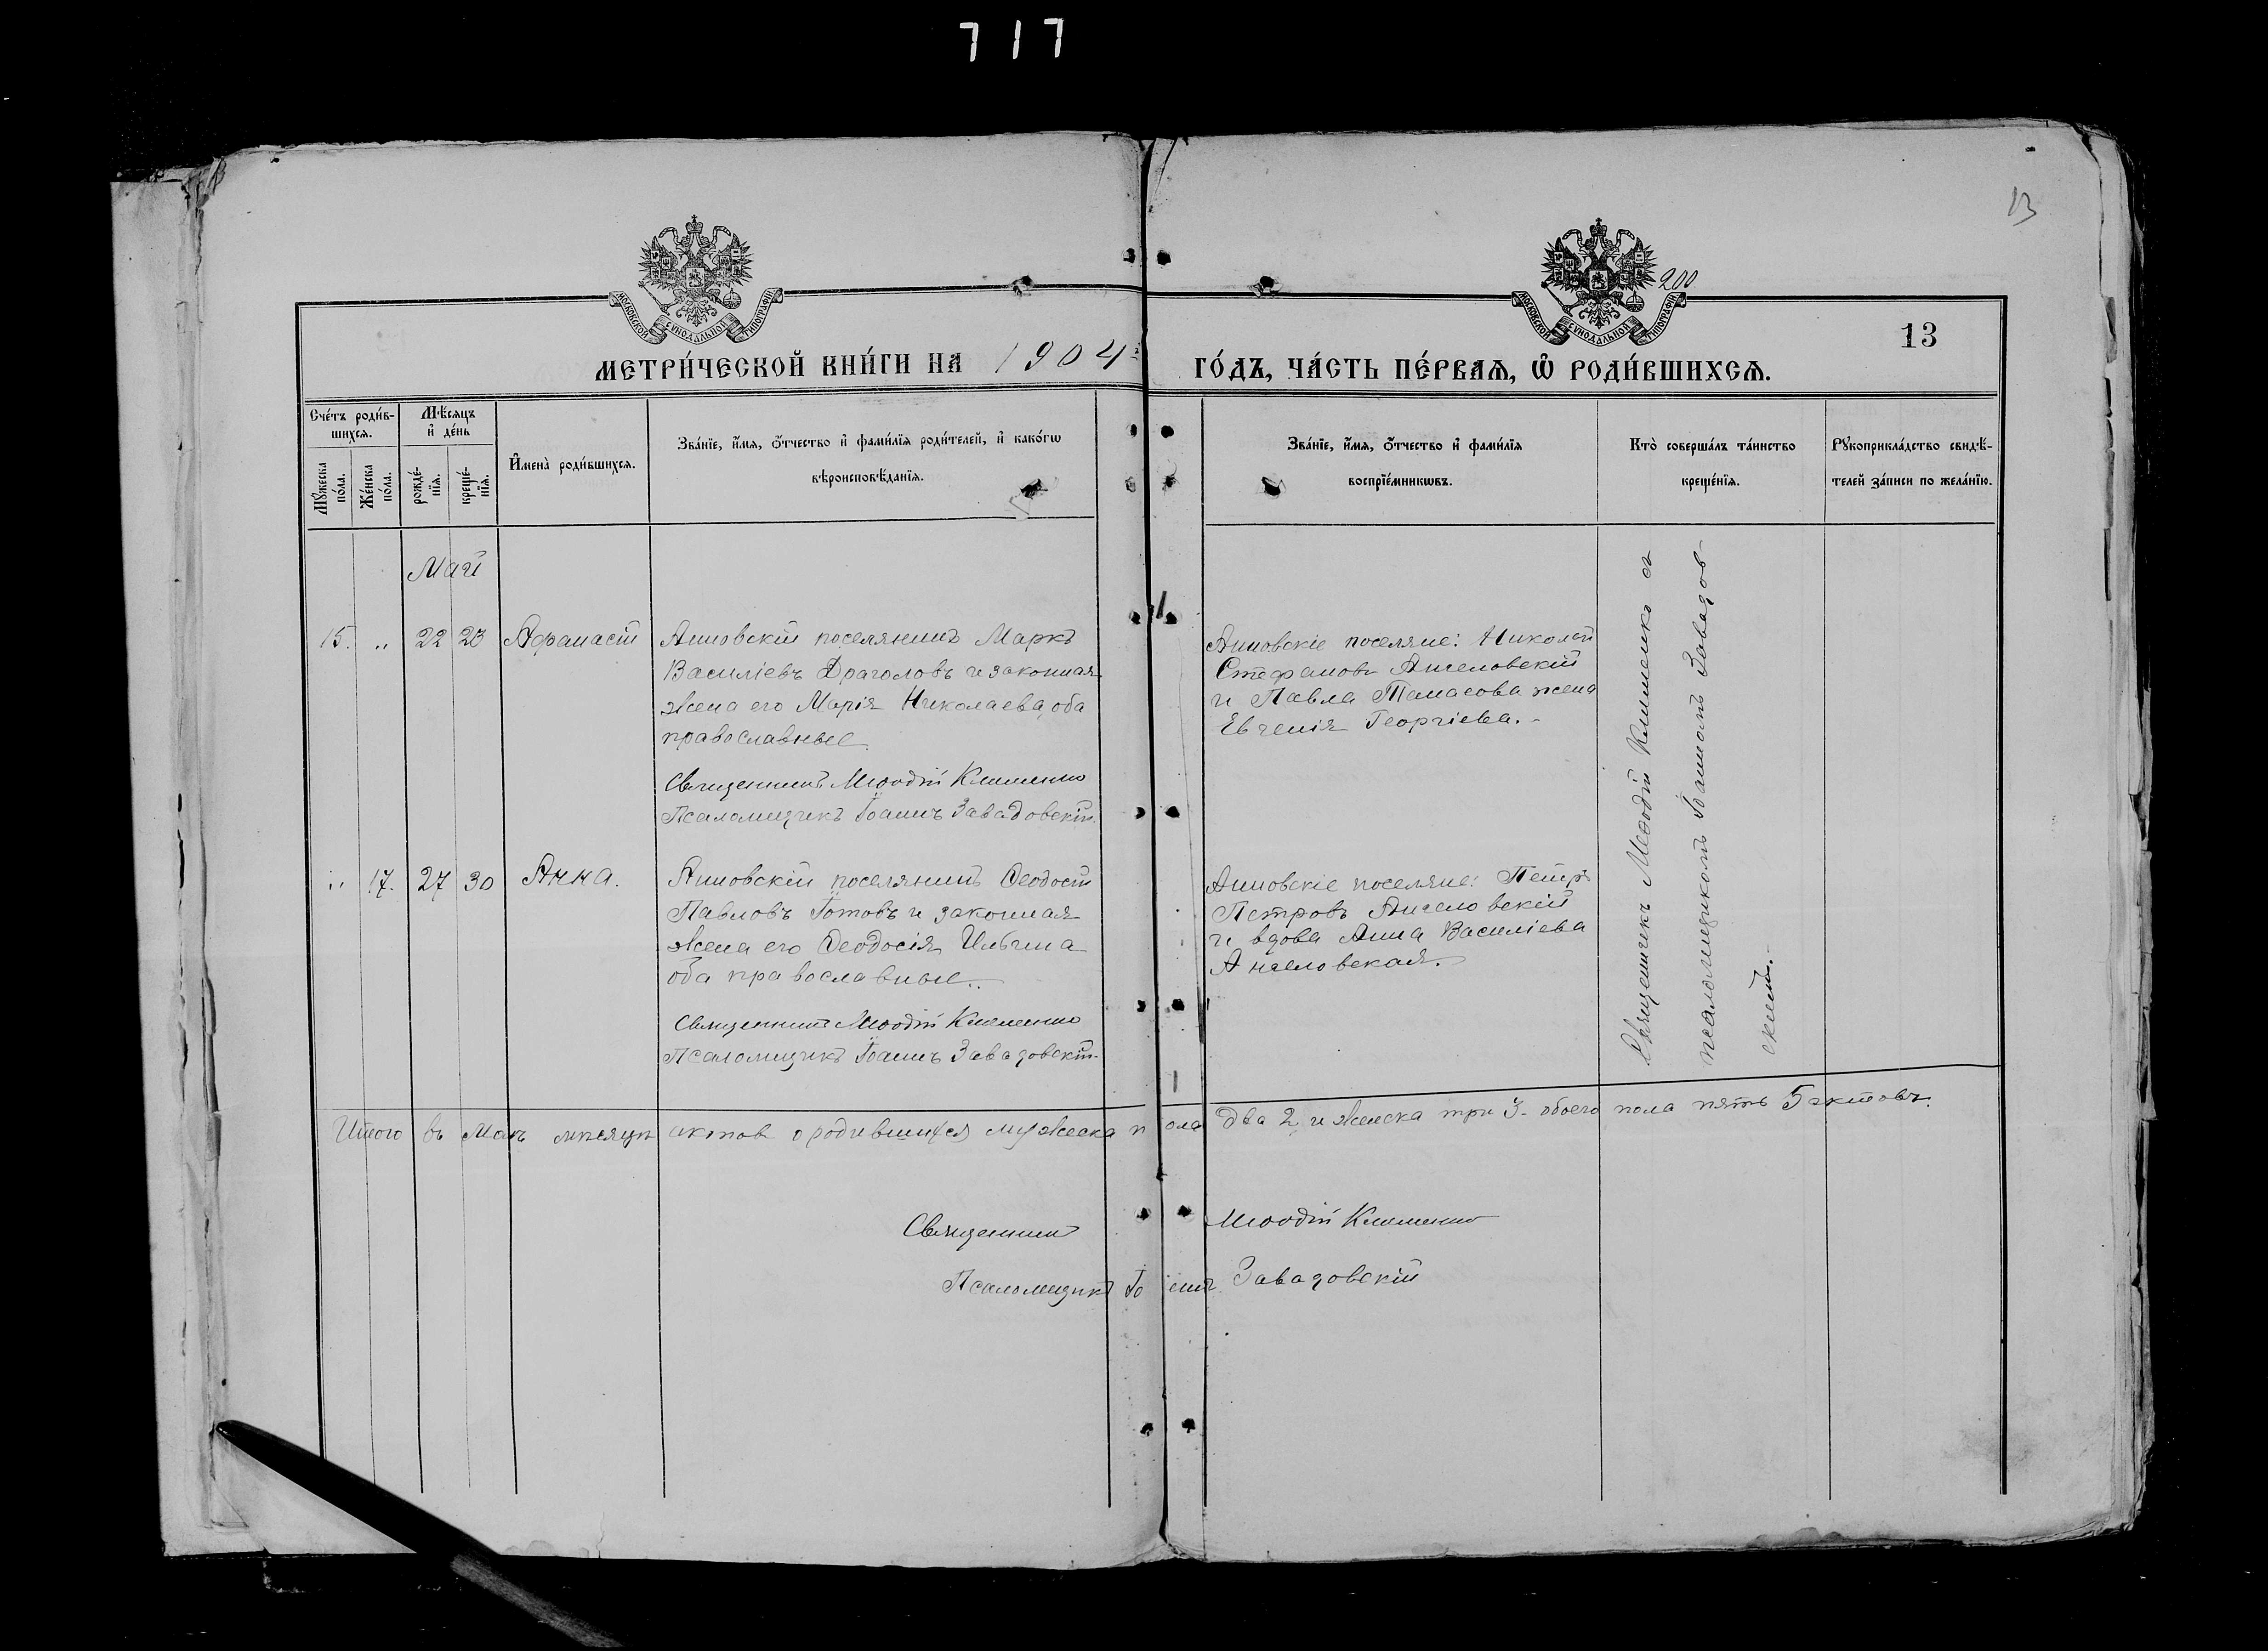 717
13
200
13
МОСКОВСКОЙ СѴНОДАЛЬНОЙ ТИПОГРАФІИ
МОСКОВСКОЙ СѴНОДАЛЬНОЙ ТИПОГРАФІИ
МЕТРИ́ЧЕСКОЙ КНИ́ГИ НА 1904 ГО́ДЪ, ЧА́СТЬ ПЕ́РВАѦ, Ѽ РОДИ́ВШИХСѦ.
Сче́тъ роди́в-
шихсѧ.
Мꙋ́жеска
по́ла.
Же́нска
по́ла.
Мѣ́сяцъ
и҆ де́нь
рожде́-
нїѧ.
креще́-
нїѧ.
И҆мена̀ роди́вшихсѧ.
Зва́нїе, и҆́мѧ, ѻ҆́тчество и҆ фами́лїѧ роди́телей, и҆ како́гѡ
вѣроисповѣ́данїѧ.
Зва́нїе, и҆́мѧ, ѻ҆́тчество и҆ фами́лїѧ
воспрїе́мникѡвъ.
Кто̀ соверша́лъ та́инство
креще́нїѧ.
Рꙋкоприкла́дство свидѣ́-
телей за́писи по жела́нїю.
Май
15. „ 22 23 Афанасій
Анновскій поселянинъ Маркъ
Василіевъ Драголовъ и законная
жена его Марія Николаева, оба
православные.
Священникъ Меѳодій Клименко
Псаломщикъ Іоаннъ Завадовскій.
Анновскіе поселяне: Николай
Стефановъ Ангеловскій
и Павла Танасова жена
Евгенія Георгіева.-
„ 17. 27 30 Анна.
Анновскій поселянинъ Ѳеодосій
Павловъ Готовъ и законная
жена его Ѳеодосія Ильина
оба православные.
Священникъ Меѳодій Клименко
Псаломщикъ Іоаннъ Завадовскій.
Анновскіе поселяне: Петръ
Петровъ Ангеловскій
и вдова Анна Василіева
Ангеловская.
Священникъ Меѳодій Клименко съ
псаломщикомъ Іоанномъ Завадов-
скимъ.-
Итого въ Маѣ мѣсяцѣ актовъ о родившихся мужеска пола два 2, и женска три 3. обоего пола пять 5 актовъ.
Священникъ Меѳодій Клименко
Псаломщикъ Іоаннъ Завадовскій